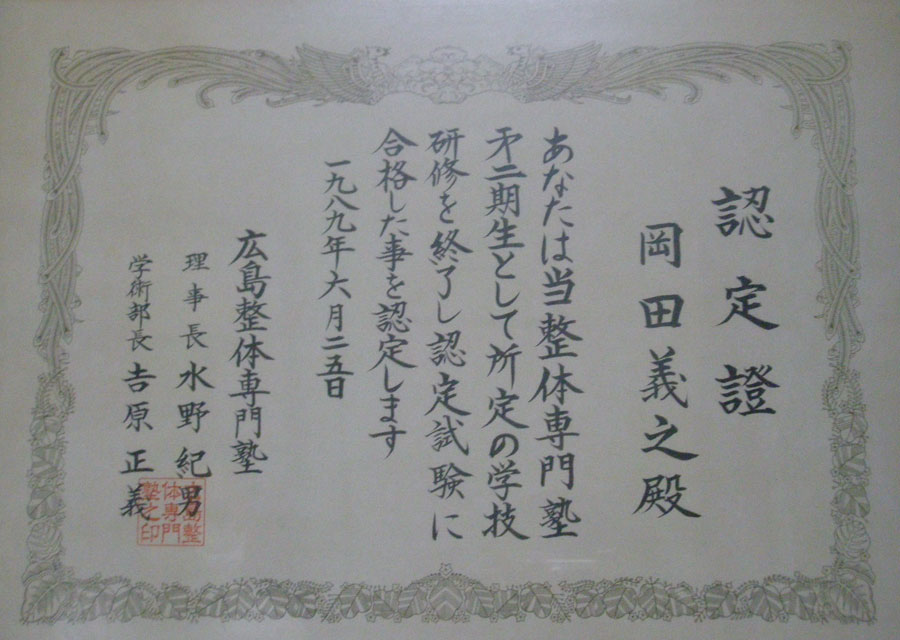 認定證
岡田義之殿
あなたは当整体専門塾
㐧二期生として所定の学技
研修を終了し認定試験に
合格した事を認定します
一九八九年六月二五日
広島整体専門塾
理事長 水野紀男
学術部長 吉原正義
広島整
体専門
塾之印